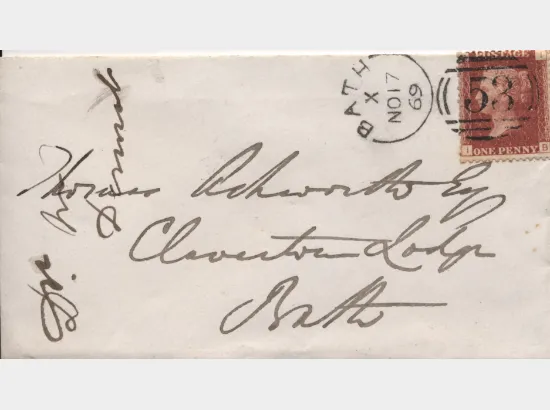 BATH
X
NO 17
69
POSTAGE
53
I ONE PENNY B
Thomas Ashworth Esq
Claverton Lodge
Bath